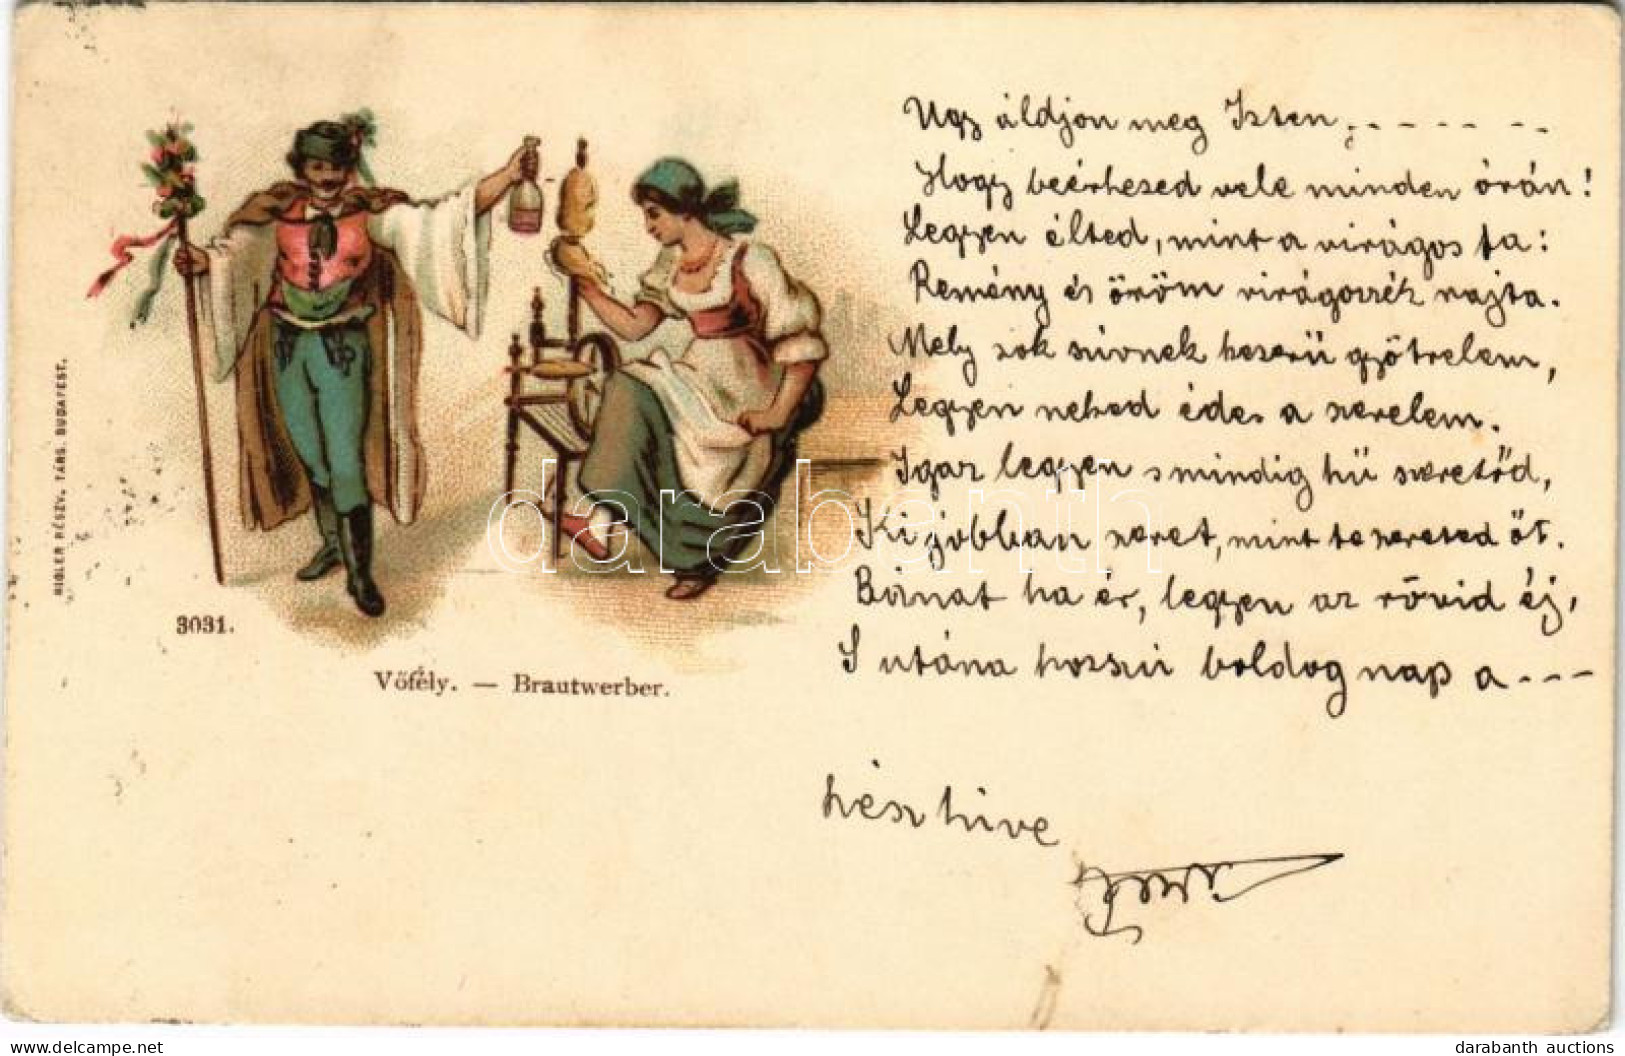 RIGLER RÉSZV. TÁRS. BUDAPEST.
3031.
Vőfély. — Brautwerber.
Ugy áldjon meg Isten, - - - - - -
Hogy beérhesed vele minden órán!
Legyen élted, mint a virágos fa:
Remény és öröm virágozzék rajta.
Mely sok szivnek keserü gyötrelem,
Legyen neked édes a szerelem.
Igaz legyen s mindig hű szeretőd,
Ki jobban szeret, mint te szereted őt.
Bánat ha ér, legyen az rövid éj,
S utána hosszú boldog nap a - - -
kész híve
darabanth
www.delcampe.net
darabanth auctions